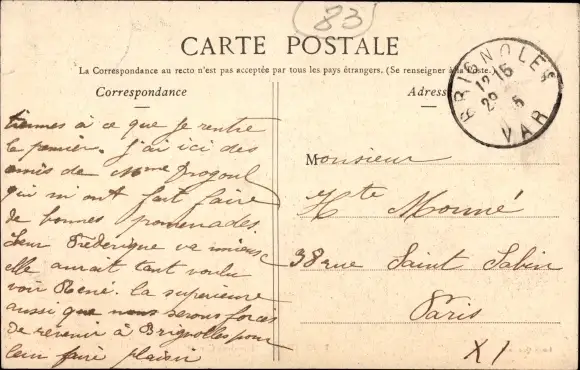 83
CARTE POSTALE
La Correspondance au recto n'est pas acceptée par tous les pays étrangers. (Se renseigner à la Poste.)
Correspondance
Adresse
BRIGNOLES
12 15
29 5
VAR
tiennes à ce que je rentre
le premier. J'ai ici des
amis de Mme
qui m'ont fait faire
de bonnes promenades.
Sœur Frédérique va mieux
elle aurait tant voulu
voir René. la supérieure
aussi que nous serons forcés
de revenir à Brignolles pour
leur faire plaisir
Monsieur
Hte Monné
38 rue Saint Sabin
Paris
XI